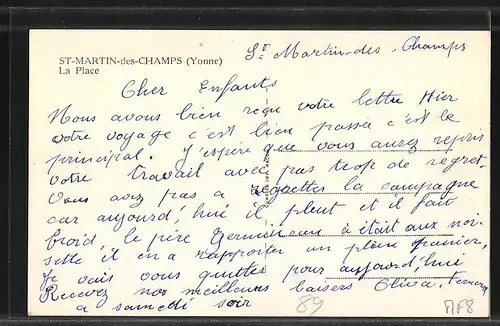 ST-MARTIN-des-CHAMPS (Yonne)
La Place
St Martin-des-Champs
Cher Enfants
Nous avons bien reçu votre lettre Hier
votre voyage c'est bien passée c'est le
principal. J'espère que vous aurez repris
votre travail avec pas trop de regret.
Vous avez pas a regrettes la campagne
car aujourd'hui il pleut et il fait
froid, le père Germineau à était aux noi-
sette il en a rapporter un plein panier,
Je vais vous quittes pour aujourd'hui
Recevez nos meilleurs baisers Oliva
a samedi soir
89
MF8